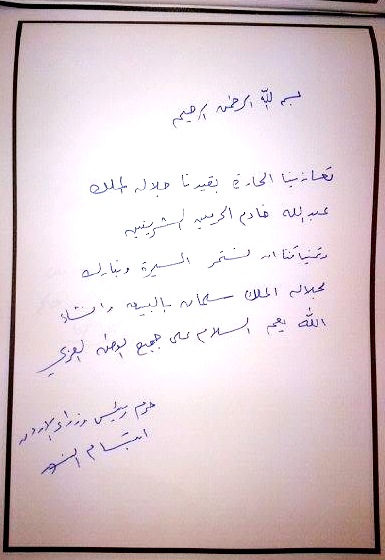 بسم الله الرحمن الرحيم
تعازينا الحارة بفقيدنا جلالة الملك
عبدالله خادم الحرمين الشريفين
وتمنياتنا ان تستمر المسيرة ونبارك
لجلالة الملك سلمان بالبيعة وانشاء
الله يعم السلام على جميع الوطن العربي
حرم رئيس وزراء الاردن
ابتسام